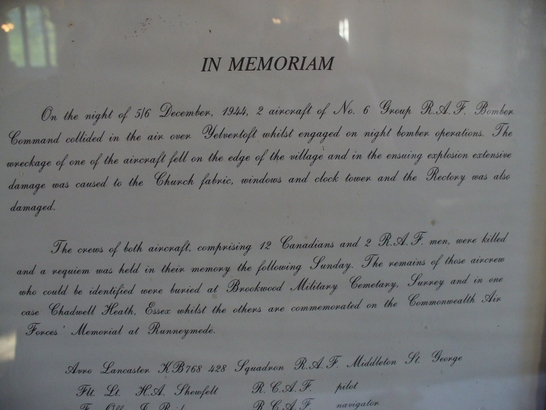 IN MEMORIAM
On the night of 5/6 December, 1944, 2 aircraft of No. 6 Group R.A.F. Bomber
Command collided in the air over Yelvertoft whilst engaged on night bomber operations. The
wreckage of one of the aircraft fell on the edge of the village and in the ensuing explosion extensive
damage was caused to the Church fabric, windows and clock tower and the Rectory was also
damaged.
The crews of both aircraft, comprising 12 Canadians and 2 R.A.F. men, were killed
and a requiem was held in their memory the following Sunday. The remains of those aircrew
who could be identified were buried at Brookwood Military Cemetary, Surrey and in one
case Chadwell Heath, Essex whilst the others are commemorated on the Commonwealth Air
Forces' Memorial at Runneymede.
Avro Lancaster KB768 428 Squadron R.A.F. Middleton St. George
Flt. Lt. H.A. Shewfelt R.C.A.F. pilot
R.C.A.F. navigator